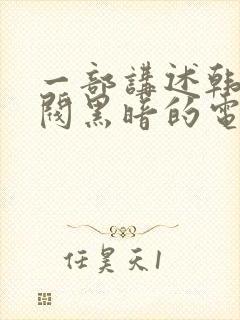 一部講述韩
閥黑暗的電
任昊天1